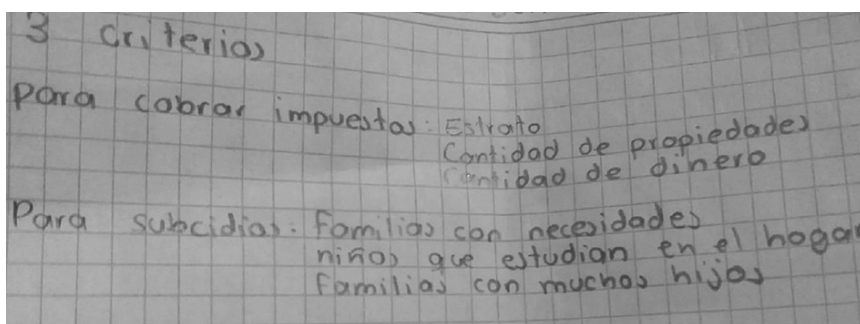 3 criterios
para cobrar impuestos: Estrato
Cantidad de propiedades
Cantidad de dinero
Para subcidios: familias con necesidades
niños que estudian en el hogar
familias con muchos hijos